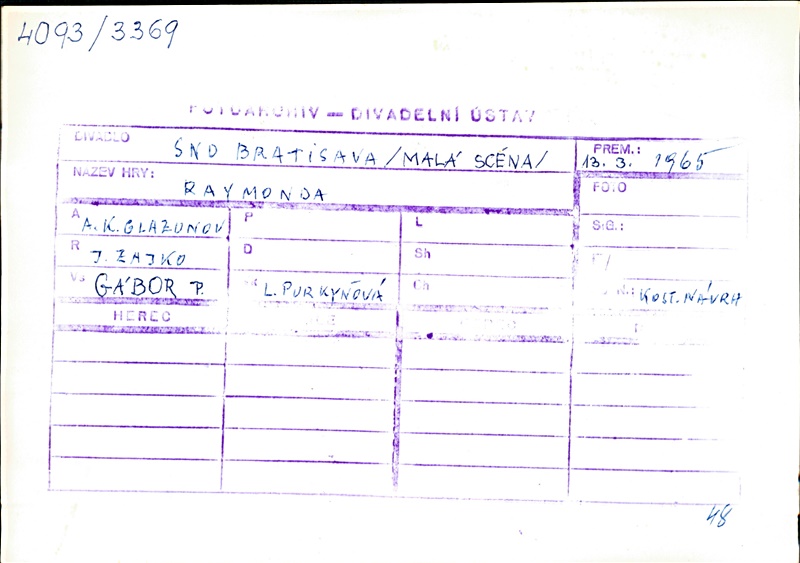 4093/3369
FOTOARCHIV — DIVADELNÍ ÚSTAV
DIVADLO SND BRATISAVA /MALÁ SCÉNA/
PREM.: 13. 3. 1965
NÁZEV HRY: RAYMONDA
FOTO
A A.K. GLAZUNOV P L SIG.:
R J. ZAJKO D Sh F/
Vs GÁBOR P. L. PURKYŇOVÁ Ch KOST. NÁVRH
HEREC
48